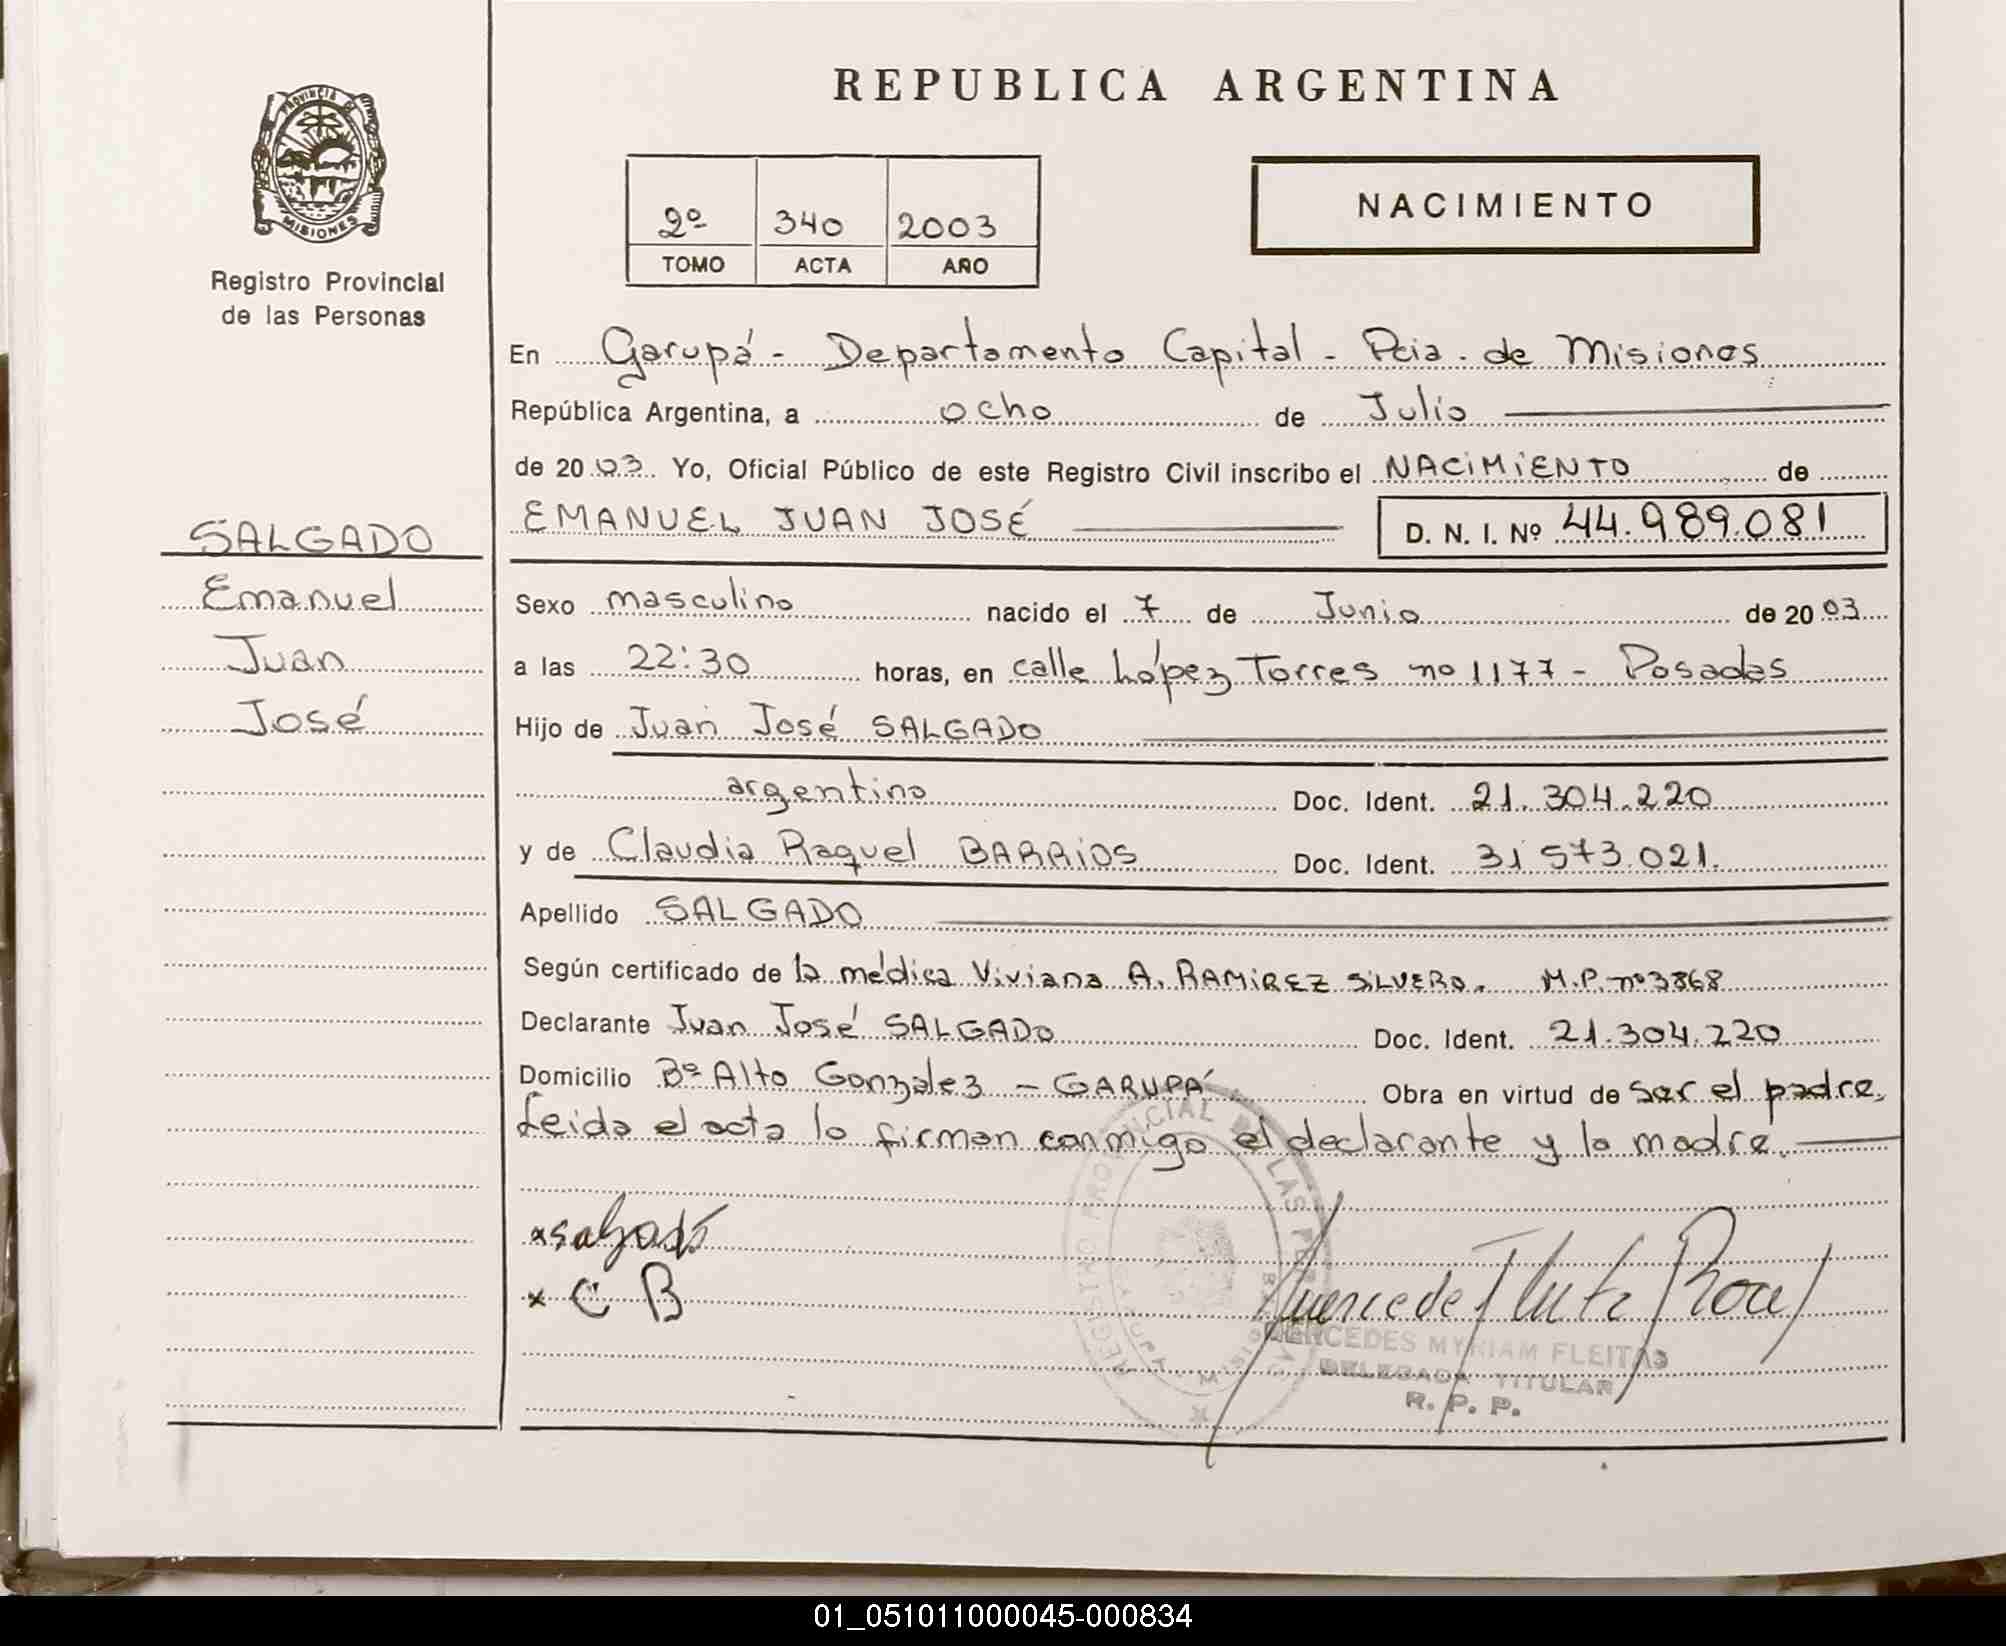 REPUBLICA ARGENTINA
PROVINCIA DE
MISIONES
Registro Provincial
de las Personas
2º 340 2003
TOMO ACTA AÑO
NACIMIENTO
En Garupá - Departamento Capital - Pcia. de Misiones
República Argentina, a ocho de Julio
de 2003 Yo, Oficial Público de este Registro Civil inscribo el NACIMIENTO de
EMANUEL JUAN JOSÉ D. N. I. Nº 44.989.081
SALGADO
Emanuel
Juan
José
Sexo masculino nacido el 7 de Junio de 2003
a las 22:30 horas, en calle López Torres nº 1177 - Posadas
Hijo de Juan José SALGADO
argentino Doc. Ident. 21.304.220
y de Claudia Raquel BARRIOS Doc. Ident. 31 573.021.
Apellido SALGADO
Según certificado de la médica Viviana A. RAMIREZ SILVERO. M.P. nº 3868
Declarante Juan José SALGADO Doc. Ident. 21.304.220
Domicilio Bº Alto Gonzalez - GARUPÁ Obra en virtud de ser el padre,
Leida el acta lo firman conmigo el declarante y la madre.
REGISTRO PROVINCIAL DE LAS
x Salgado
x C B
MERCEDES MYRIAM FLEITAS
DELEGADA TITULAR
R. P. P.
01_051011000045-000834